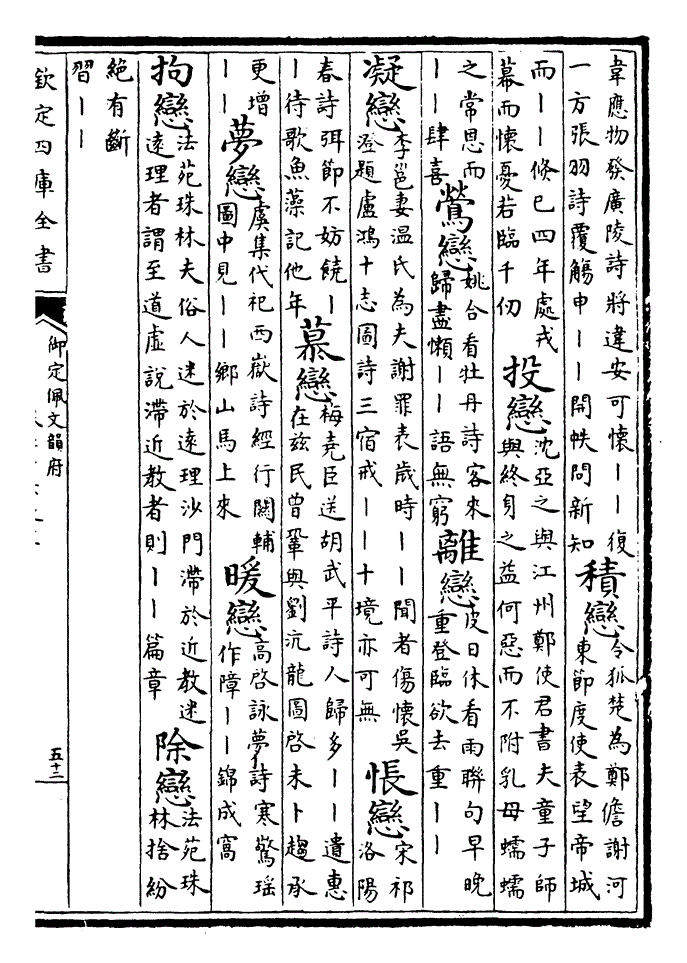 韋應物發廣陵詩將違安可懷丨丨復
一方張羽詩覆觴申丨丨開帙問新知
積戀
令狐楚為鄭儋謝河
東節度使表望帝城
而丨丨倏已四年處戎
幕而懷憂若臨千仞
投戀
沈亞之與江州鄭使君書夫童子師
與終身之益何惡而不附乳母蠕蠕
之常思而
丨丨肆喜
鶯戀
姚合看牡丹詩客來
歸盡懶丨丨語無窮
離戀
皮日休看雨聯句早晚
重登臨欲去重丨丨
凝戀
李邕妻温氏為夫謝罪表歲時丨丨聞者傷懷吳
澄題盧鴻十志圖詩三宿戒丨丨十境亦可無
悵戀
宋祁
洛陽
春詩弭節不妨饒丨
丨待歌魚藻記他年
慕戀
梅堯臣送胡武平詩人歸多丨丨遺惠
在兹民曾鞏與劉沆龍圖啓未卜趨承
更增
丨丨
夢戀
虞集代祀西嶽詩經行關輔
圖中見丨丨鄉山馬上來
暖戀
高啓詠夢詩寒驚瑶
作障丨丨錦成窩
拘戀
法苑珠林夫俗人迷於遠理沙門滯於近教迷
遠理者謂至道虛說滯近教者則丨丨篇章
除戀
法苑珠
林捨紛
絕有斷
習丨丨
欽定四庫全書
御定佩文韻府
五十二